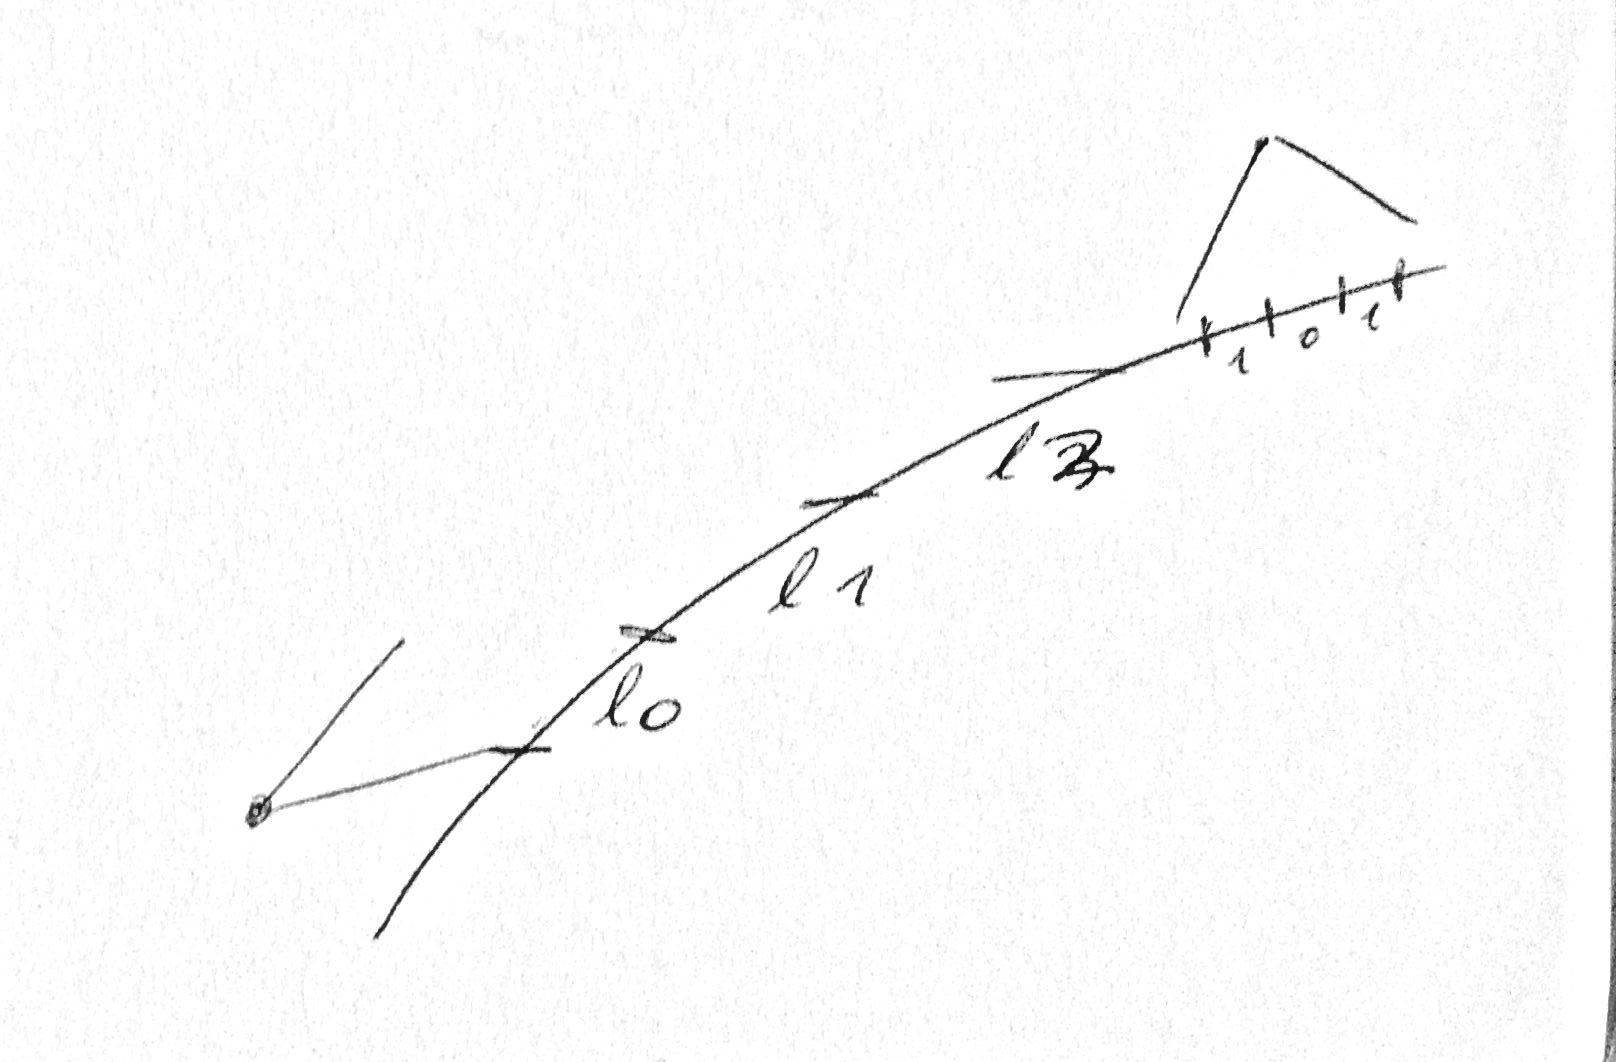 1 0 1
l
l 1
l0